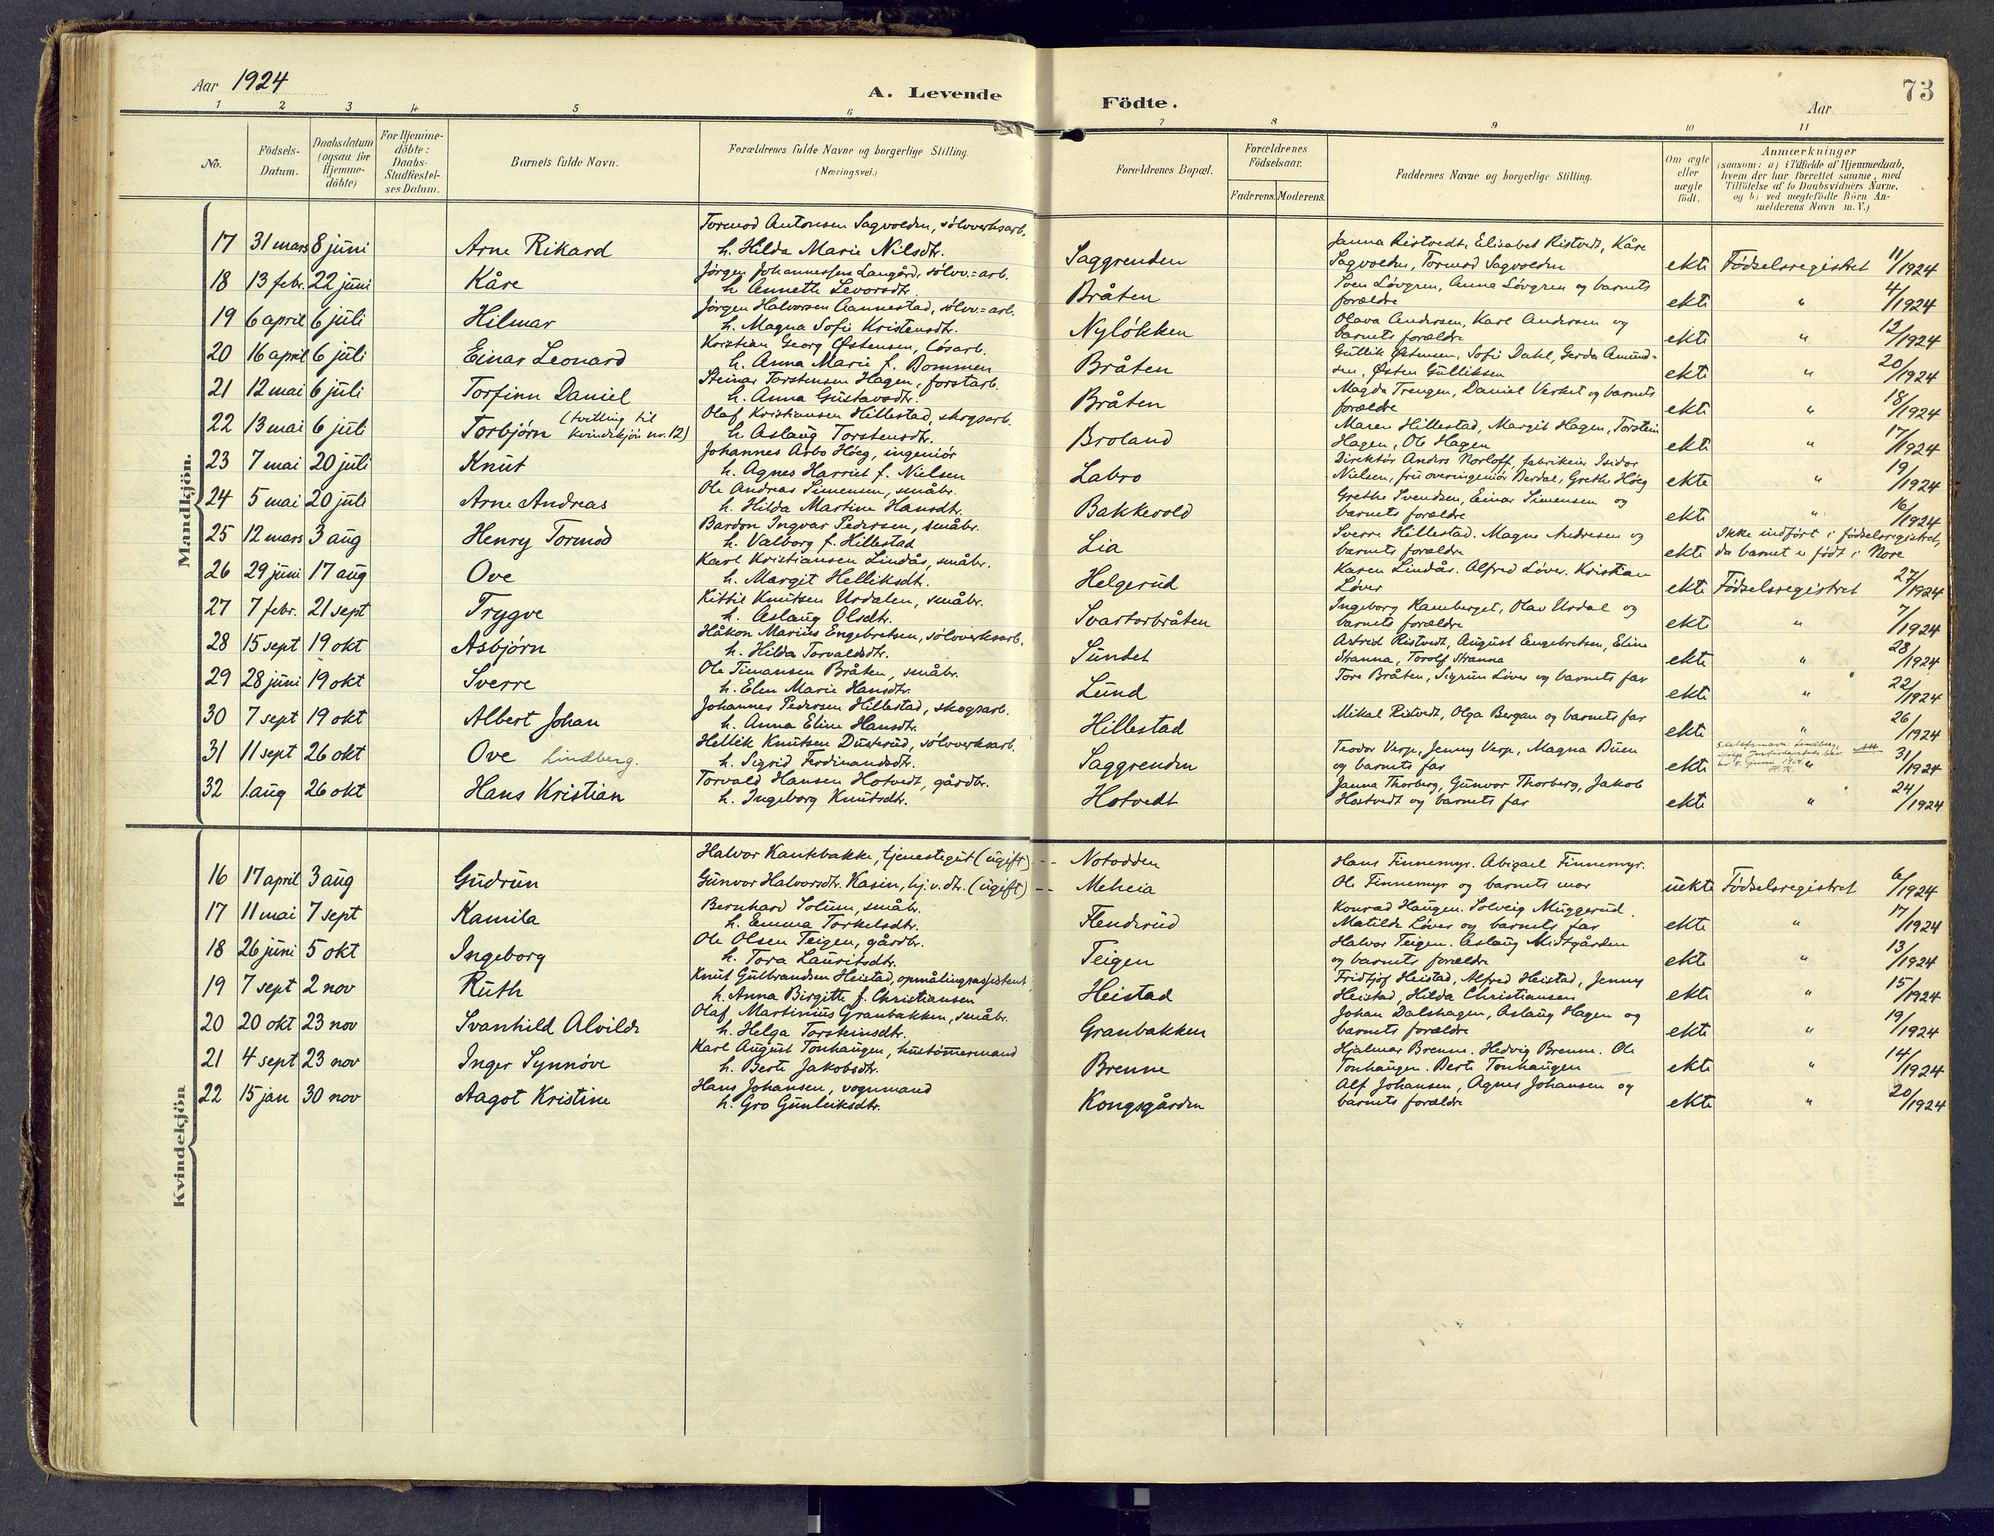 Aar 1924
A. Levende Födte.
Aar
73
1 2 3 4 5 6 7 8 9 10 11
No.
Födsels-Datum.
Daabsdatum (ogsaa for Hjemme-döbte)
For Hjemme-döbte: Daabs-Stadfæstel-ses Datum.
Barnets fulde Navn.
Forældrenes fulde Navne og borgerlige Stilling. (Næringsvei.)
Forældrenes Bopæl.
Forældrenes Födselsaar.
Faderens. Moderens.
Faddernes Navne og borgerlige Stilling.
Om ægte eller uægte födt.
Anmærkninger
(saasom: a) i Tilfælde af Hjemmedaab, hvem der har forrettet samme, med Tilföielse af to Daabsvidners Navne. og b) ved uægtefödte Börn An-melderens Navn m. V.)
Mandkjön.
Tormod Antonsen Sagvolden, sølvverksarb. Janna Ristvedt, Elisabet Ristvedt, Kåre
17 31 mars 8 juni Arne Rikard h. Hilda Marie Nilsdtr. Saggrenden Sagvolden, Tormod Sagvolden ekte Fødselsregistret 11/1924
Jørgen Johannessen Langård, sølvv.=arb. Sven Løvgren, Anna Løvgren og barnets
18 13 febr. 22 juni Kåre h. Annette Levorsdtr. Bråten forældre ekte " 4/1924
Jørgen Halvorsen Aannestad, sølvv.=arb. Olava Andersen, Karl Andersen og
19 6 april 6 juli Hilmar h. Magna Sofie Kristensdtr. Nyløkken barnets forældre ekte " 12/1924
Kristian Georg Østensen, løsarb. Gullik Østensen, Sofie Dahl, Gerda Amund-
20 16 april 6 juli Einar Leonard h. Anna Marie f. Bommen Bråten sen, Østen Gulliksen ekte " 20/1924
Steinar Torstensen Hagen, forstarb. Magda Trengen, Daniel Verket og barnets
21 12 mai 6 juli Torfinn Daniel h. Anna Gustavsdtr. Bråten forældre ekte " 18/1924
(tvilling til Olaf Kristiansen Hillestad, skogsarb. Maren Hillestad, Margit Hagen, Torstein
22 13 mai 6 juli Torbjørn kvindekjøn nr. 12) h. Aslaug Torstensdtr. Broland Hagen, Ole Hagen ekte " 17/1924
Johannes Arbo Höeg, ingeniør Direktør Anders Norloff, fabrikeier Isidor
23 7 mai 20 juli Knut h. Agnes Harriet f. Nielsen Labro Nielsen, fru overingeniør Berdal, Grethe Höeg ekte " 19/1924
Ole Andreas Simensen, småbr. Grethe Svendsen, Einar Simensen og
24 5 mai 20 juli Arne Andreas h. Hilda Martine Hansdtr. Bakkevold barnets forældre ekte " 16/1924
Bardon Ingvar Pedersen, småbr. Sverre Hillestad. Magne Andresen og Ikke indført i fødselsregistret,
25 12 mars 3 aug Henry Tormod h. Valborg f. Hillestad Lia barnets forældre ekte da barnet er født i Nore
Karl Kristiansen Lindås, småbr. Karen Lindås. Alfred Løver. Kristian
26 29 juni 17 aug Ove h. Margit Helliksdt. Helgerud Løver ekte Fødselsregistret 27/1924
Kittil Knutsen Urdalen, småbr. Ingeborg Kamberget, Olav Urdal og
27 7 febr. 21 sept Trygve h. Aslaug Olsdtr. Svartorbråten barnets forældre ekte " 7/1924
Håkon Marius Engebretsen, sølvverksarb. Astrid Ristvedt, August Engebretsen, Eline
28 15 sept 19 okt Asbjørn h. Hilda Torvaldsdtr. Sundet Stranna, Torolf Stranna ekte " 28/1924
Ole Timansen Bråten, småbr. Tore Bråten, Sigrun Løver og barnets far
29 28 juni 19 okt Sverre h. Elen Marie Hansdtr. Lund ekte " 22/1924
Johannes Pedersen Hillestad, skogsarb. Mikal Ristvedt, Olga Bergan og barnets far
30 7 sept 19 okt Albert Johan h. Anna Eline Hansdtr. Hillestad ekte " 26/1924
Hellik Knutsen Dusterud, sølvverksarb. Teodor Verp, Jenny Verp, Magna Buen Slektsnavn: Lindberg,
31 11 sept 26 okt Ove Lindberg. h. Sigrid Ferdinandsdt. Saggrenden og barnets far ekte " 31/1924
Torvald Hansen Hotvedt, gårdbr. Janna Thorberg, Gunvor Thorberg, Jakob
32 1. aug 26 okt Hans Kristian h. Ingeborg Knutsdtr. Hotvedt Hostvedt og barnets far ekte " 24/1924
Kvindekjön
Halvor Kankbakke, tjenestegut (ugift) -- Notodden Hans Finnemyr. Abigael Finnemyr.
16 17 april 3 aug Gudrun Gunvor Halvorsdtr. Kasin, hj.v. dtr. (ugift) -- Meheia Ole Finnemyr og barnets mor uekte Fødselsregistret 6/1924
Bernhard Solum, småbr. Konrad Haugen. Solveig Muggerud.
17 11 mai 7 sept Kamila h. Emma Torkelsdtr. Flenderud Matilde Løver og barnets far ekte " 17/1924
Ole Olsen Teigen, gårdbr. Halvor Teigen. Aslaug Midtgården
18 26 juni 5 okt Ingeborg h. Tora Lauritsdtr. Teigen og barnets forældre ekte " 13/1924
Knut Gulbrandsen Heistad, opmålingsassistent, Fridtjof Heistad, Alfred Heistad, Jenny
19 7 sept 2 nov Ruth h. Anna Birgitte f. Christiansen Heistad Heistad, Hilda Christiansen ekte " 15/1924
Olaf Martinius Granbakken, småbr. Johan Dalshagen, Aslaug Hagen og
20 20 okt 23 nov Svanhild Alvilde h. Helga Torsteinsdtr. Granbakken barnets forældre ekte " 19/1924
Karl August Tonhaugen, hustømmermand Hjalmar Brenne. Hedvig Brenne. Ole
21 4 sept 23 nov Inger Synnøve h. Berte Jakobsdtr. Brenne Tonhaugen. Berte Tonhaugen ekte " 14/1924
Hans Johansen, vognmand Alf Johansen, Agnes Johansen og
22 15 jan 30 nov Aagot Kristine h. Gro Gunleiksdtr. Kongsgården barnets forældre ekte " 20/1924